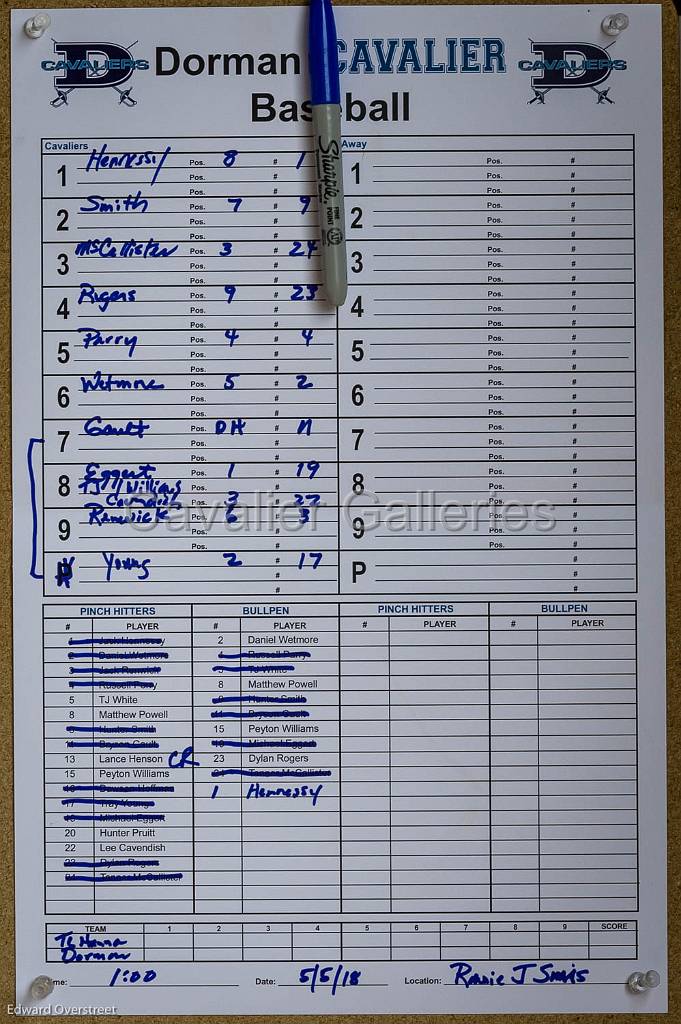 CAVALIERS D Dorman CAVALIER CAVALIERS D
Baseball
Cavaliers Away
1 Hennessy Pos. 8 # 1
2 Smith Pos. 7 # 9
3 McCallister Pos. 3 # 24
4 Rogers Pos. 9 # 23
5 Parry Pos. 4 # 4
6 Wetmore Pos. 5 # 2
7 Gault Pos. DH # 11
8 Eggert Pos. 1 # 19
TJ Williams
Cavendish 3 22
9 Renwick Pos. 6 # 3
P Young 2 # 17
1 Pos. #
2 Pos. #
3 Pos. #
4 Pos. #
5 Pos. #
6 Pos. #
7 Pos. #
8 Pos. #
9 Pos. #
P #
Sharpie
FINE POINT
Cavalier Galleries
PINCH HITTERS BULLPEN PINCH HITTERS BULLPEN
# PLAYER # PLAYER # PLAYER # PLAYER
1 Jack Hennessy 2 Daniel Wetmore
2 Daniel Wetmore 4 Russell Parry
3 Jack Renwick 5 TJ White
4 Russell Parry 8 Matthew Powell
5 TJ White 9 Hunter Smith
8 Matthew Powell 11 Bryson Gault
9 Hunter Smith 15 Peyton Williams
11 Bryson Gault 19 Michael Eggert
13 Lance Henson CR 23 Dylan Rogers
15 Peyton Williams 24 Tanner McCallister
16 Dawson Hoffman 1 Hennessy
17 Troy Young
19 Michael Eggert
20 Hunter Pruitt
22 Lee Cavendish
23 Dylan Rogers
24 Tanner McCallister
TEAM 1 2 3 4 5 6 7 8 9 SCORE
TL Hanna
Dorman
me: 1:00 Date: 5/5/18 Location:
Edward Overstreet